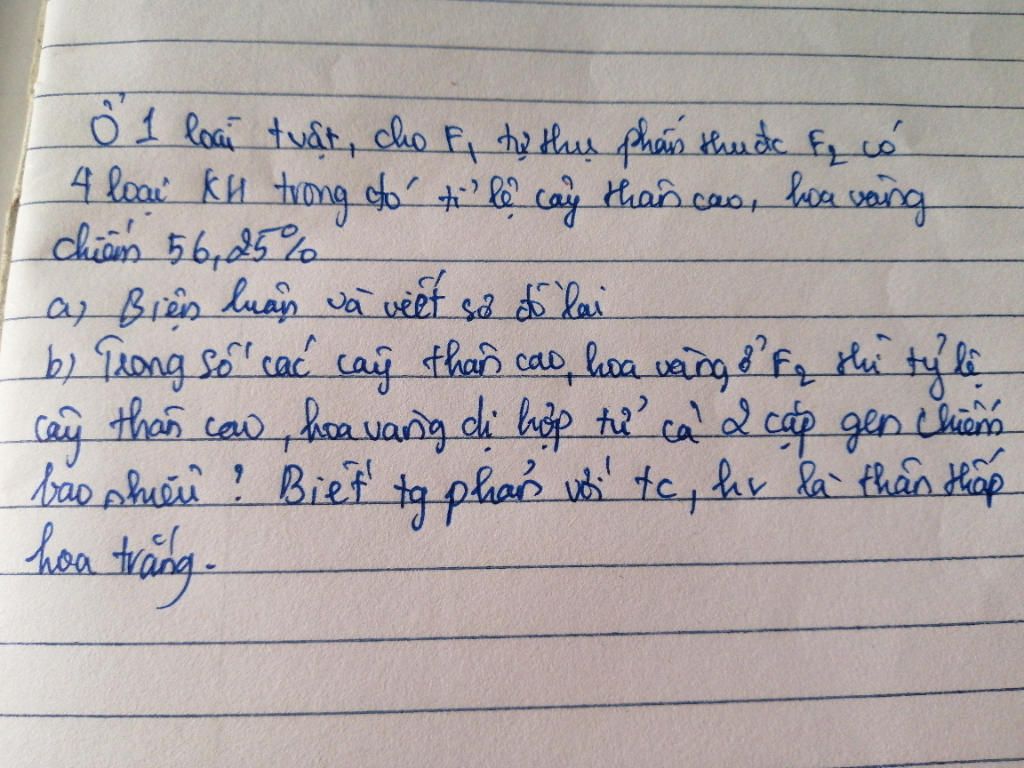 Ở 1 loài tvật, cho F₁ tự thụ phấn thuđc F₂ có
4 loại KH trong đó tỉ lệ cây thân cao, hoa vàng
chiếm 56,25%
a) Biện luận và viết sơ đồ lai
b) Trong số các cây thân cao, hoa vàng ở F₂ thì tỷ lệ
cây thân cao, hoa vàng dị hợp tử cả 2 cặp gen chiếm
bao nhiêu? Biết tg phản với tc, hv là thân thấp
hoa trắng.